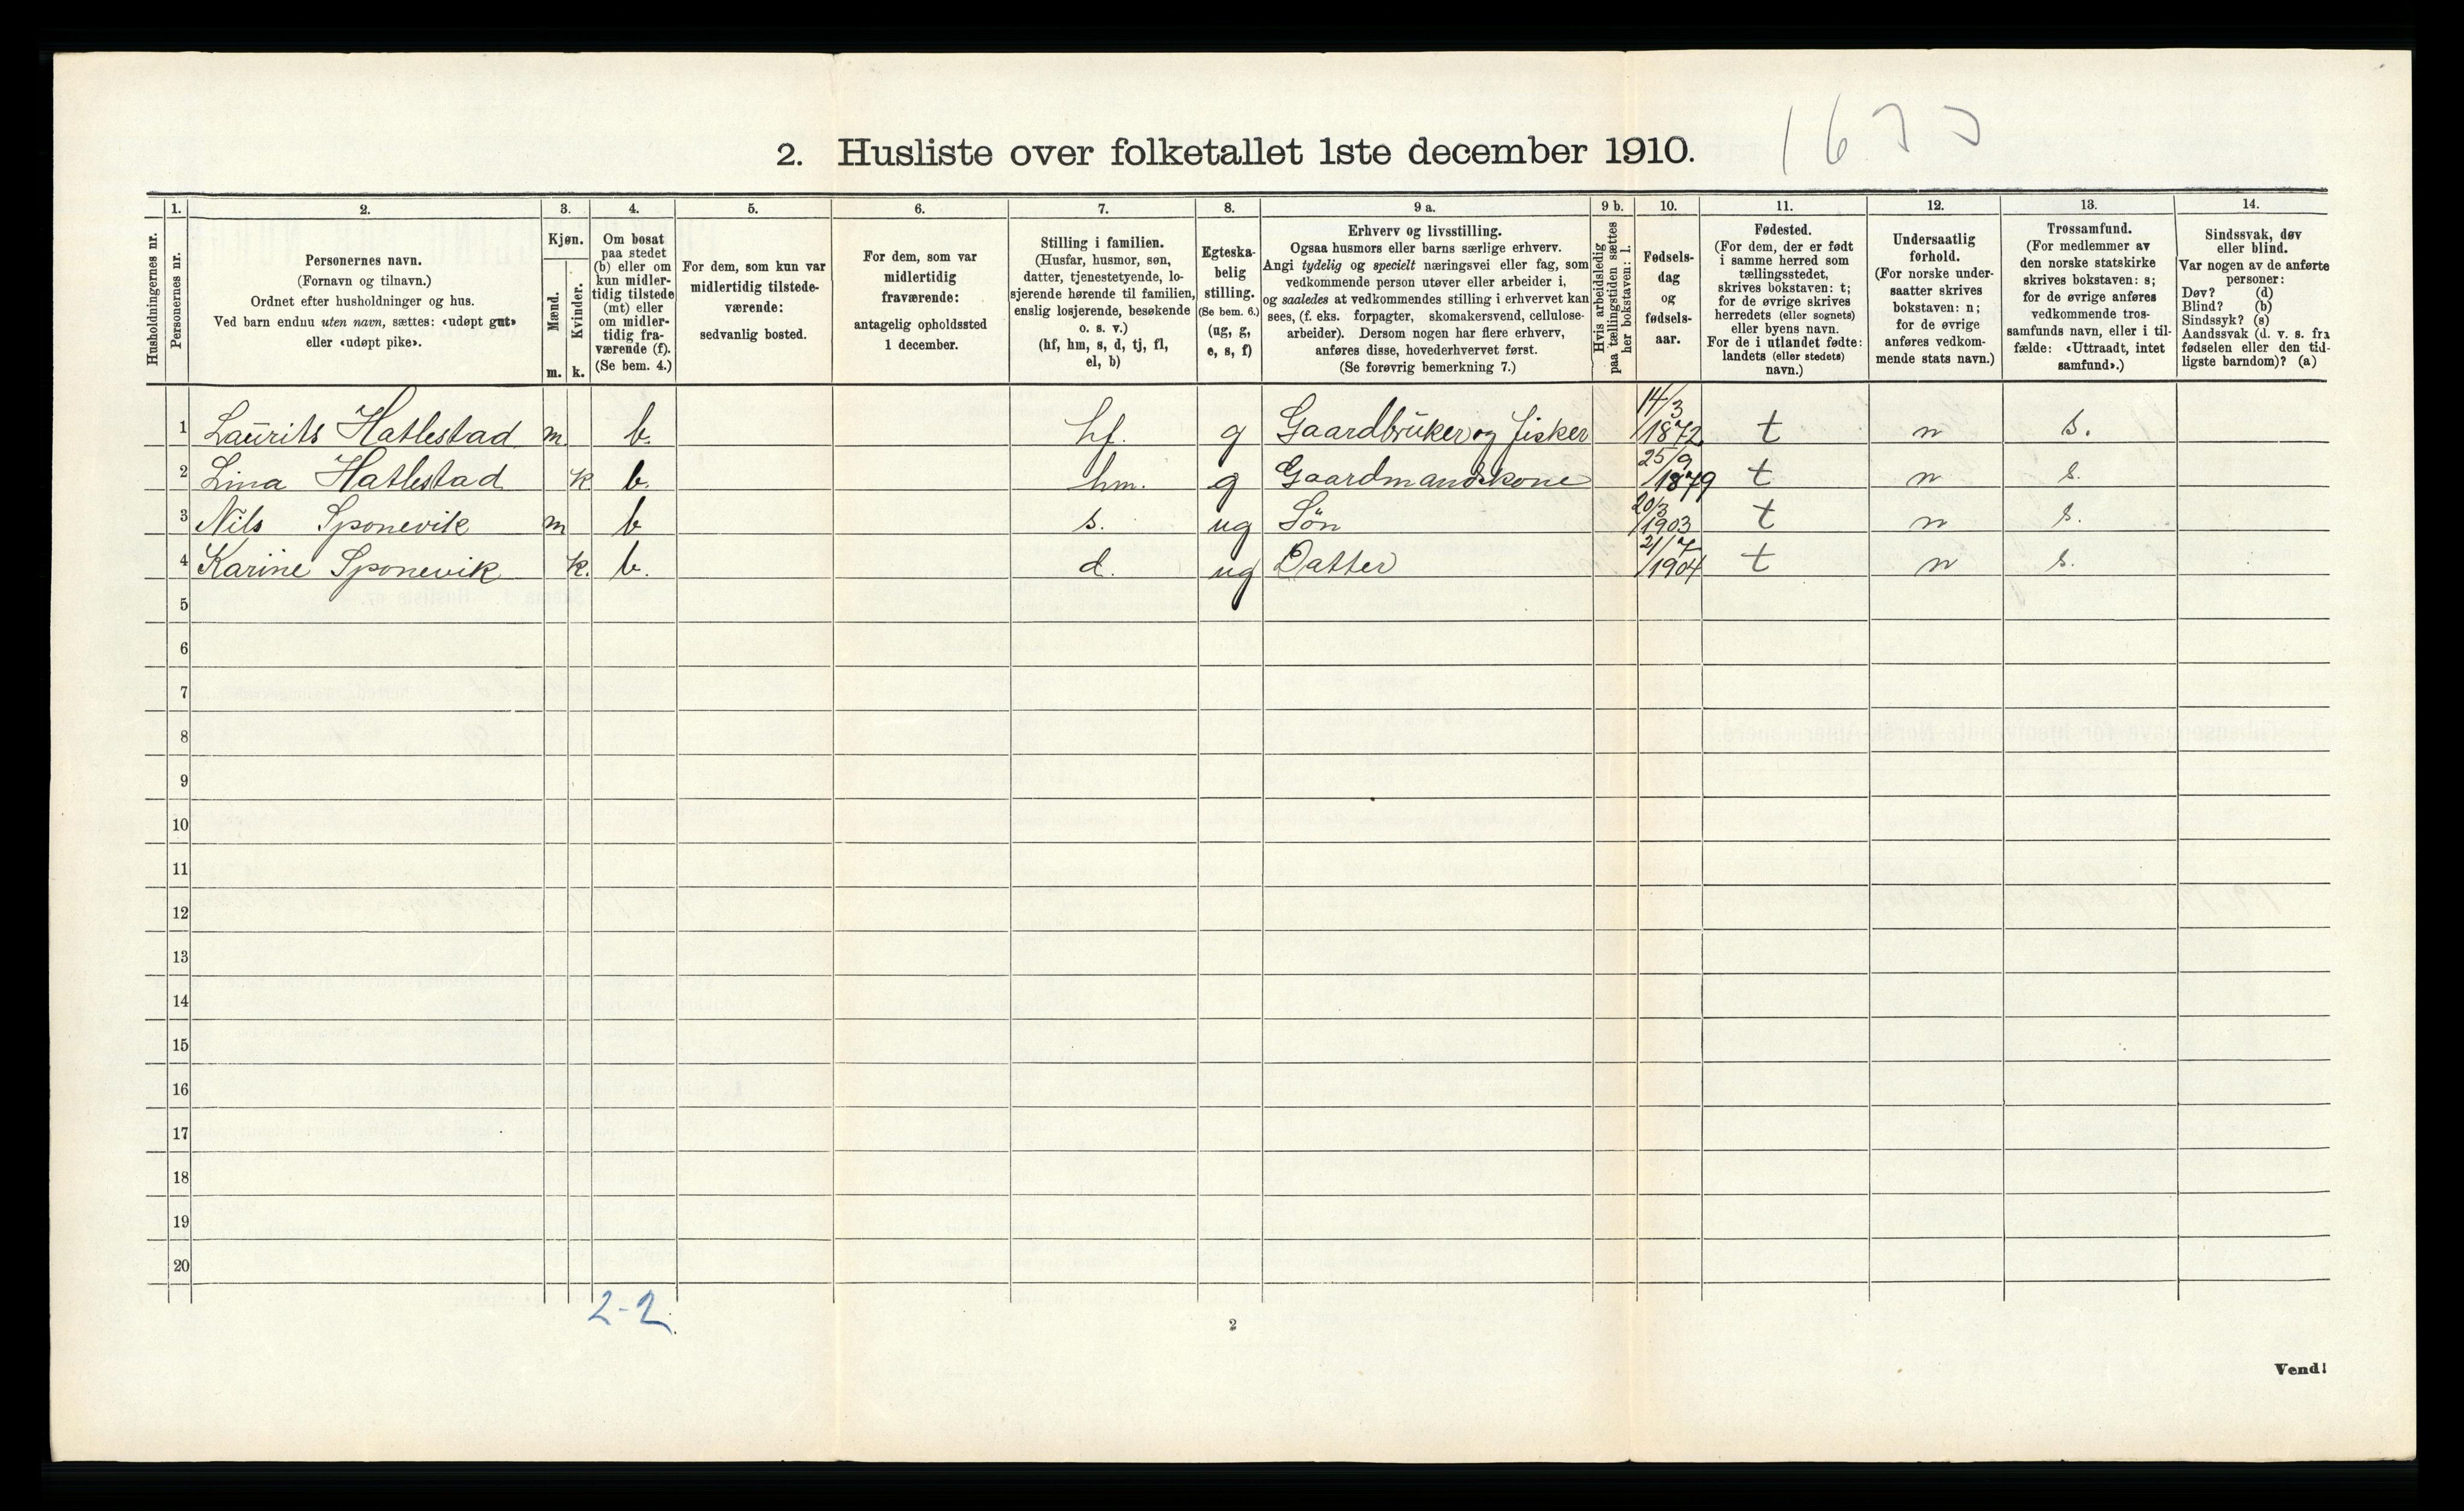 1633
2. Husliste over folketallet 1ste december 1910.
Husholdningernes nr.
1. Personernes nr.
2. Personernes navn.
(Fornavn og tilnavn.)
Ordnet efter husholdninger og hus.
Ved barn endnu uten navn, sættes: «udøpt gut»
eller «udøpt pike».
3. Kjøn.
Mænd. m.
Kvinder. k.
4. Om bosat
paa stedet
(b) eller om
kun midler-
tidig tilstede
(mt) eller
om midler-
tidig fra-
værende (f).
(Se bem. 4.)
5. For dem, som kun var
midlertidig tilstede-
værende:
sedvanlig bosted.
6. For dem, som var
midlertidig
fraværende:
antagelig opholdssted
1 december.
7. Stilling i familien.
(Husfar, husmor, søn,
datter, tjenestetyende, lo-
sjerende hørende til familien,
enslig losjerende, besøkende
o. s. v.)
(hf, hm, s, d, tj, fl,
el, b)
8. Egteska-
belig
stilling.
(Se bem. 6.)
(ug, g,
e, s, f)
9 a. Erhverv og livsstilling.
Ogsaa husmors eller barns særlige erhverv.
Angi tydelig og specielt næringsvei eller fag, som
vedkommende person utøver eller arbeider i,
og saaledes at vedkommendes stilling i erhvervet kan
sees, (f. eks. forpagter, skomakersvend, cellulose-
arbeider). Dersom nogen har flere erhverv,
anføres disse, hovederhvervet først.
(Se forøvrig bemerkning 7.)
9 b. Hvis arbeidsledig
paa tællingstiden sættes
her bokstaven: l.
10. Fødsels-
dag
og
fødsels-
aar.
11. Fødested.
(For dem, der er født
i samme herred som
tællingsstedet,
skrives bokstaven: t;
for de øvrige skrives
herredets (eller sognets)
eller byens navn.
For de i utlandet fødte:
landets (eller stedets)
navn.)
12. Undersaatlig
forhold.
(For norske under-
saatter skrives
bokstaven: n;
for de øvrige
anføres vedkom-
mende stats navn.)
13. Trossamfund.
(For medlemmer av
den norske statskirke
skrives bokstaven: s;
for de øvrige anføres
vedkommende tros-
samfunds navn, eller i til-
fælde: «Uttraadt, intet
samfund».)
14. Sindssvak, døv
eller blind.
Var nogen av de anførte
personer:
Døv? (d)
Blind? (b)
Sindssyk? (s)
Aandssvak (d. v. s. fra
fødselen eller den tid-
ligste barndom)? (a)
1 Laurits Hatlestad m. b. hf. g Gaardbruker og fisker 14/3 1872 t n s.
2 Lina Hatlestad k b. hm. g Gaardmandskone 25/9 1879 t n s.
3 Nils Sponevik m b s. ug Søn 20/3 1903 t n s.
4 Karine Sponevik k. b. d. ug Datter 21/7 1904 t n s.
5
6
7
8
9
10
11
12
13
14
15
16
17
18
19
20
2-2.
2
Vend!